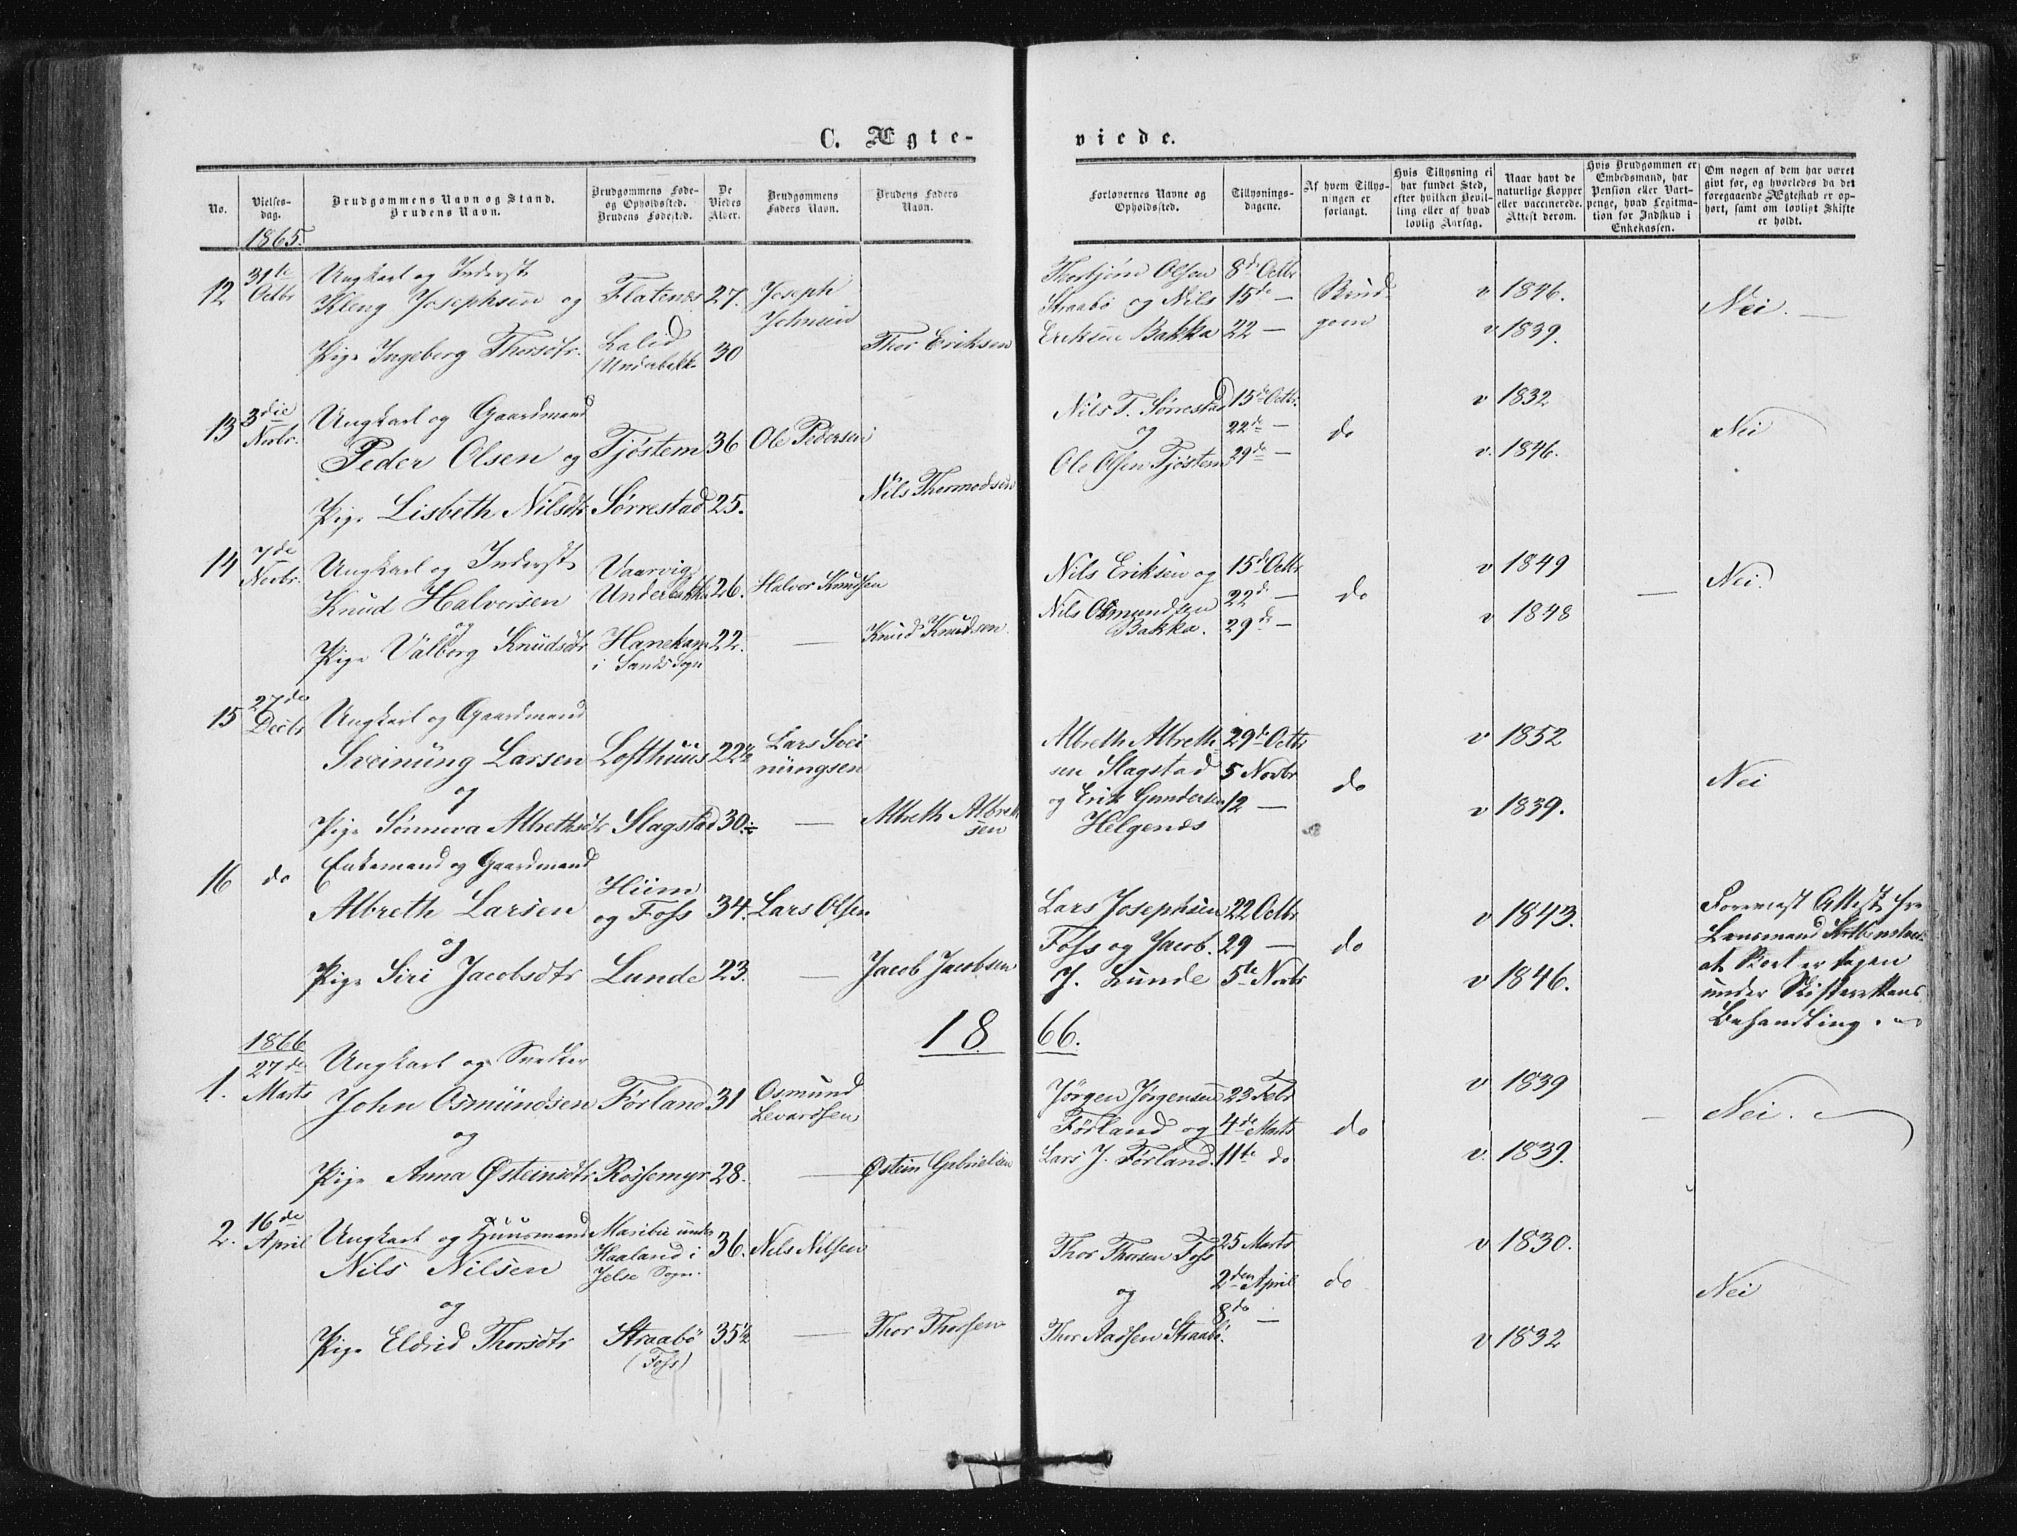 C. Ægte-
viede.
No.
Vielses-
dag.
Brudgommens Navn og Stand.
Brudens Navn.
Brudgommens Føde-
og Opholdssted.
Brudens Fødested.
De
Viedes
Alder.
Brudgommens
Faders Navn.
Brudens Faders
Navn.
Forlovernes Navne og
Opholdssted.
Tillysnings-
dagene.
Af hvem Tillys-
ningen er
forlangt.
Hvis Tillysning ei
har fundet Sted,
efter hvilken Bevil-
ling eller af hvad
lovlig Aarsag.
Naar havt de
naturlige Kopper
eller vaccinerede.
Attest derom.
Hvis Brudgommen er
Embedsmand, har
Pension eller Vart-
penge, hvad Legitima-
tion for Indskud i
Enkekassen.
Om nogen af dem har været
givt før, og hvorledes da det
foregaaende Ægteskab er op-
hørt, samt om lovligt Skifte
er holdt.
1865.
12
31te
Octbr
Ungkarl og Inderst
Kleng Josephsen og
Pige Ingeborg Thorsdtr.
Flatenes
Laled
(Underbakk
27.
30
Joseph
Johnsen
Thor Eriksen
Thorbjørn Olsen
Straabø og Nils
Eriksen Bakka
8de Octbr
15de —
22 —
Brud-
gom
v 1846.
v 1839.
Nei. —
13
3die
Novbr.
Ungkarl og Gaardmand
Peder Olsen og
Pige Lisbeth Nilsdtr
Tjøstem
Sørrestad
36
25.
Ole Pedersen
Nils Thormodsen
Nils T. Sørrestad
og
Ole Olsen Tjøstem
15de Octbr.
22de —
29de —
do
v 1832
v. 1846.
Nei
14
7de
Novbr.
Ungkarl og Inderst
Knud Halvorsen
og
Pige Valborg Knudsdtr
Vaarvig
Underbakka
Hanekam
i Sands Sogn
26.
22.
Halvor Knudsen
—
Knud Knudsen
Nils Eriksen og
Nils Osmundsen
Bakka.
15de Octbr
22de —
29de —
do
v 1849
v 1848
—
Nei.
15
27de
Decbr
Ungkarl og Gaardmand
Sveinung Larsen
og
Pige Sønneva Albrethsdtr
Lofthuus
Slagstad
22½
30.
Lars Svei
nungsen
—
Albreth Albreth
sen
Albreth Albreth-
sen Slagstad
og Erik Gundersen
Helgenes
29de Octbr
5 Novbr
12 —
do
v 1852
v 1839.
Nei
16
do
Enkemand og Gaardmand
Albreth Larsen
og
Pige Siri Jacobsdtr
Hiim
og Foss
Lunde
34.
23.
Lars Olsen
—
Jacob Jacobsen
Lars Josephsen
Foss og Jacob.
J. Lunde
22 Octbr
29 —
5te Novbr
do
v 1843.
v 1846.
Forevist Attest fra
Lensmand
at Boet er tagen
under Skifterettens
Behandling.
18 66.
1866
1.
27de
Marts
Ungkarl og Snedker
John Osmundsen
og
Pige Anna Østeinsdtr
Førland
Røssemyr
31
28.
Osmund
Levardsen
—
Østein Gabrielsen
Jørgen Jørgensen
Førland og
Lars J. Førland.
23 Febr
4de Marts
11te do
do
v 1839
v. 1839.
—
Nei.
2.
16de
April
Ungkarl og Huusmand
Nils Nilsen
og
Pige Eldrid Thorsdtr
Maribu under
Haaland i
Jelse Sogn.
Straabø
(Foss)
36.
35½
Nils Nilsen
—
Thor Thorsen
Thor Thorsen Foss
og
Thor Aadsen Straabø.
25 Marts
2den April
8de —
do
v 1830.
v 1832
Nei